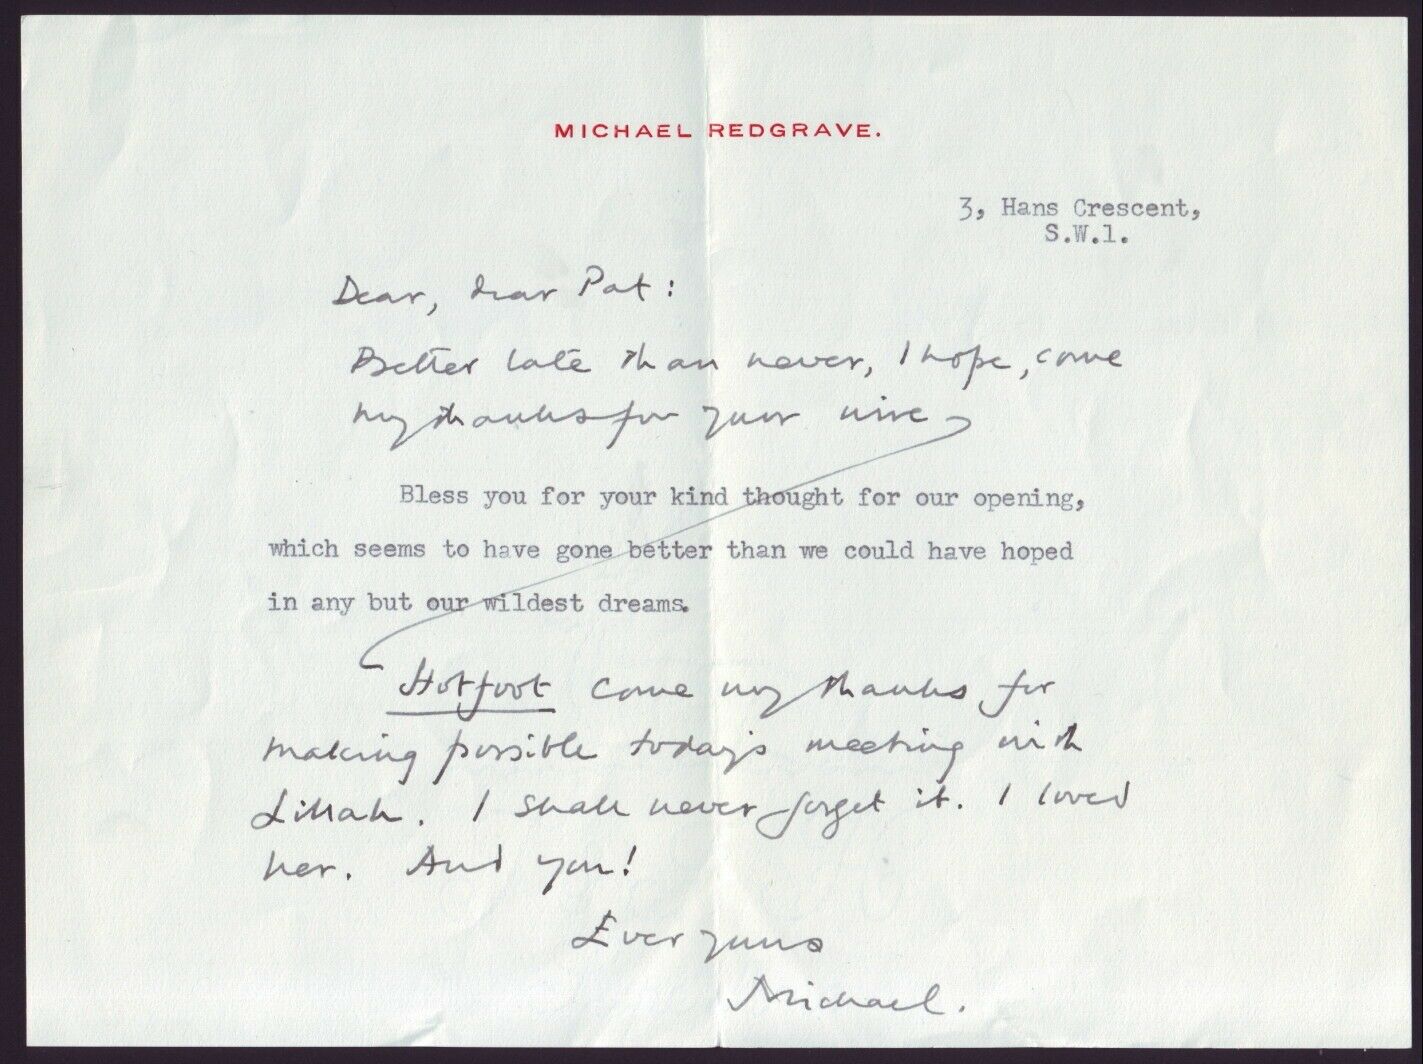 MICHAEL REDGRAVE.
3, Hans Crescent,
S.W.1.
Dear, dear Pat:
Better late than never, I hope, come
my thanks for your wire
Bless you for your kind thought for our opening,
which seems to have gone better than we could have hoped
in any but our wildest dreams.
Hotfoot come my thanks for
making possible today's meeting with
Lillah. I shall never forget it. I loved
her. And you!
Ever yours
Michael.